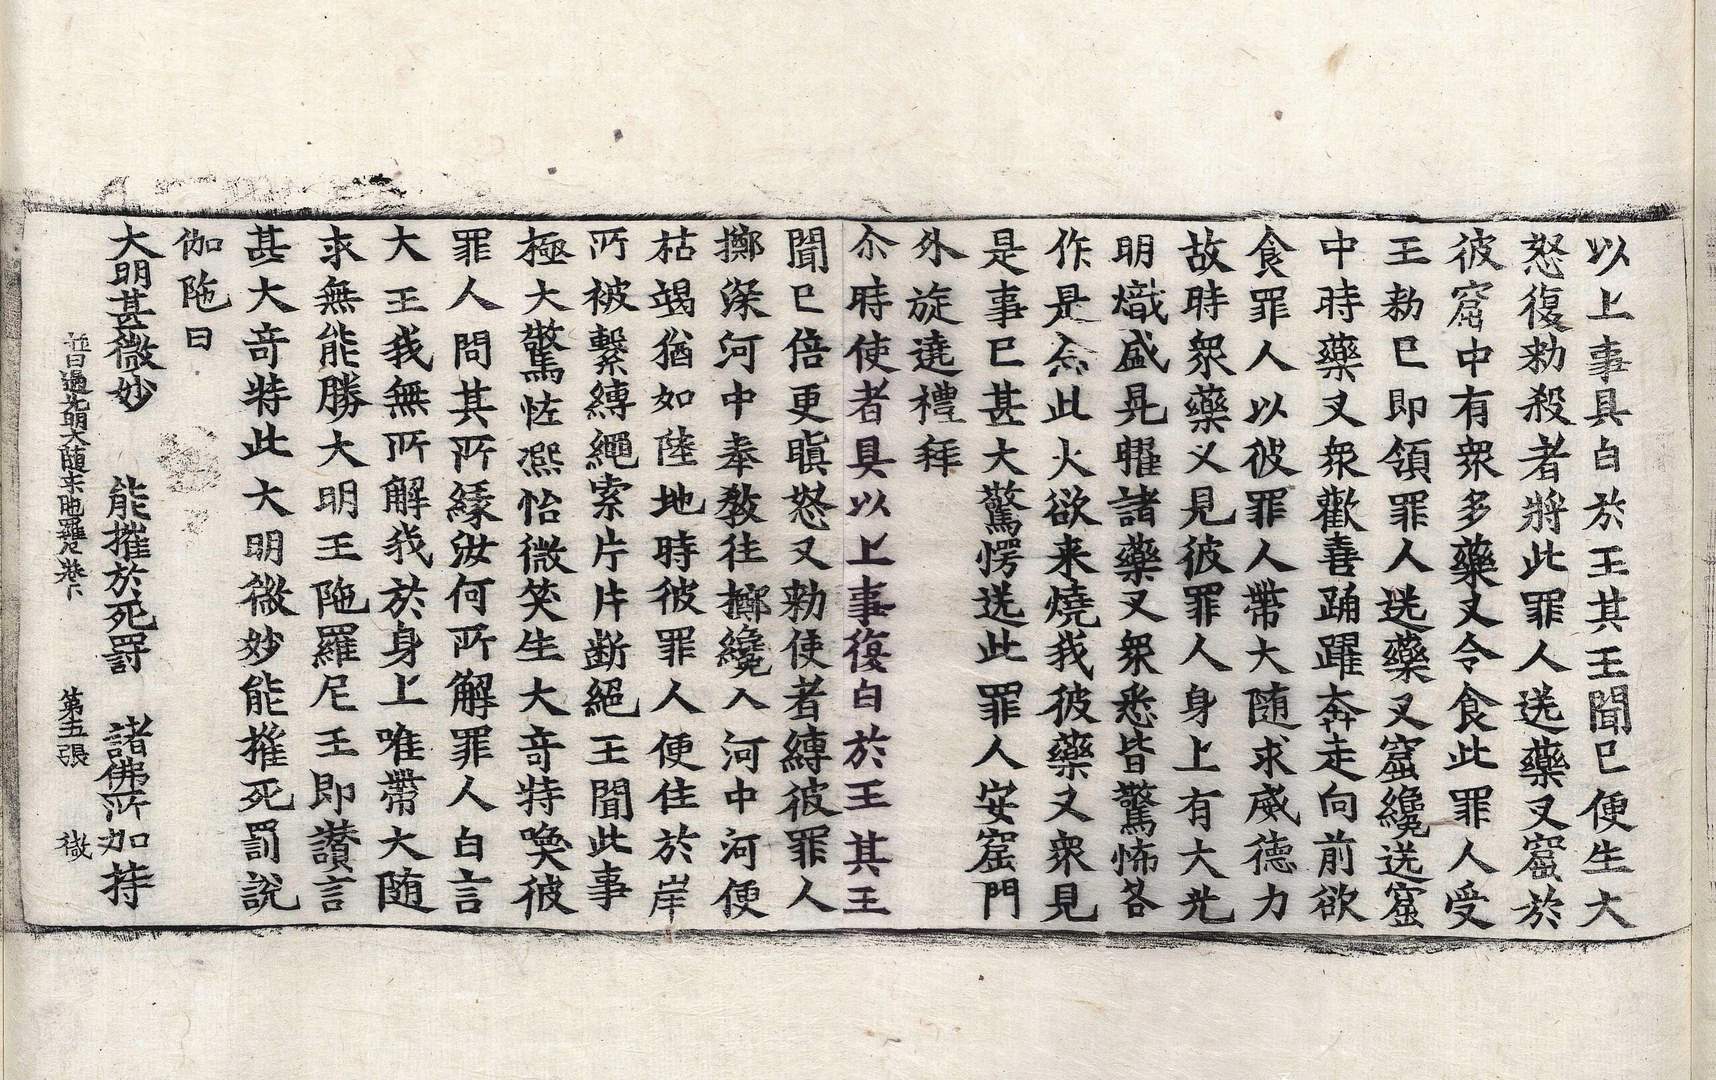 以上事具白於王其王聞已便生大
怒復勑殺者將此罪人送藥叉窟於
彼窟中有衆多藥叉令食此罪人受
王勑已即領罪人送藥叉窟纔送窟
中時藥叉衆歡喜踊躍奔走向前欲
食罪人以彼罪人帶大随求威德力
故時衆藥叉見彼罪人身上有大光
明熾盛晃曜諸藥叉衆悉皆驚怖各
作是念此火欲来燒我彼藥叉衆見
是事已甚大驚愕送此罪人安窟門
外旋遶禮拜
尒時使者具以上事復白於王其王
聞已倍更瞋怒又勑使者縛彼罪人
擲深河中奉教往擲纔入河中河便
枯竭猶如陸地時彼罪人便住於岸
所被繫縛繩索片片断絕王聞此事
極大驚恠熈怡微笑生大竒特喚彼
罪人問其所緣汝何所解罪人白言
大王我無所解我於身上唯帶大随
求無能勝大明王陁羅尼王即讃言
甚大竒特此大明微妙能摧死罰說
伽陁曰
大明甚微妙 能摧於死罰 諸佛所加持
普曰遍光明大随求陁羅尼卷下 第五張 㣲